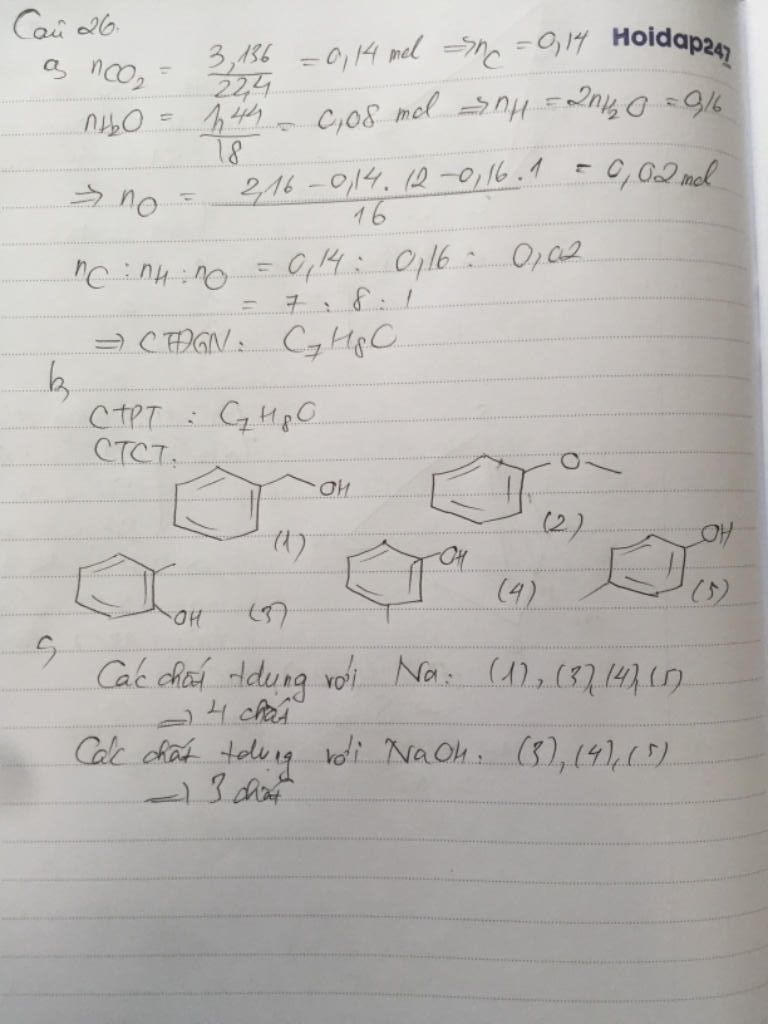 Câu 26.
Hoidap247
a, nCO2 = 3,136/22,4 = 0,14 mol ⇒ nC = 0,14
nH2O = 1,44/18 = 0,08 mol ⇒ nH = 2nH2O = 0,16
⇒ nO = (2,16 - 0,14.12 - 0,16.1)/16 = 0,02 mol
nC : nH : nO = 0,14 : 0,16 : 0,02
= 7 : 8 : 1
⇒ CTĐGN: C7H8O
b,
CTPT : C7H8O
CTCT:
OH (1) O (2)
OH (3) OH (4) OH (5)
c,
Các chất tdụng với Na: (1), (3), (4), (5)
⇒ 4 chất
Các chất tdụng với NaOH: (3), (4), (5)
⇒ 3 chất